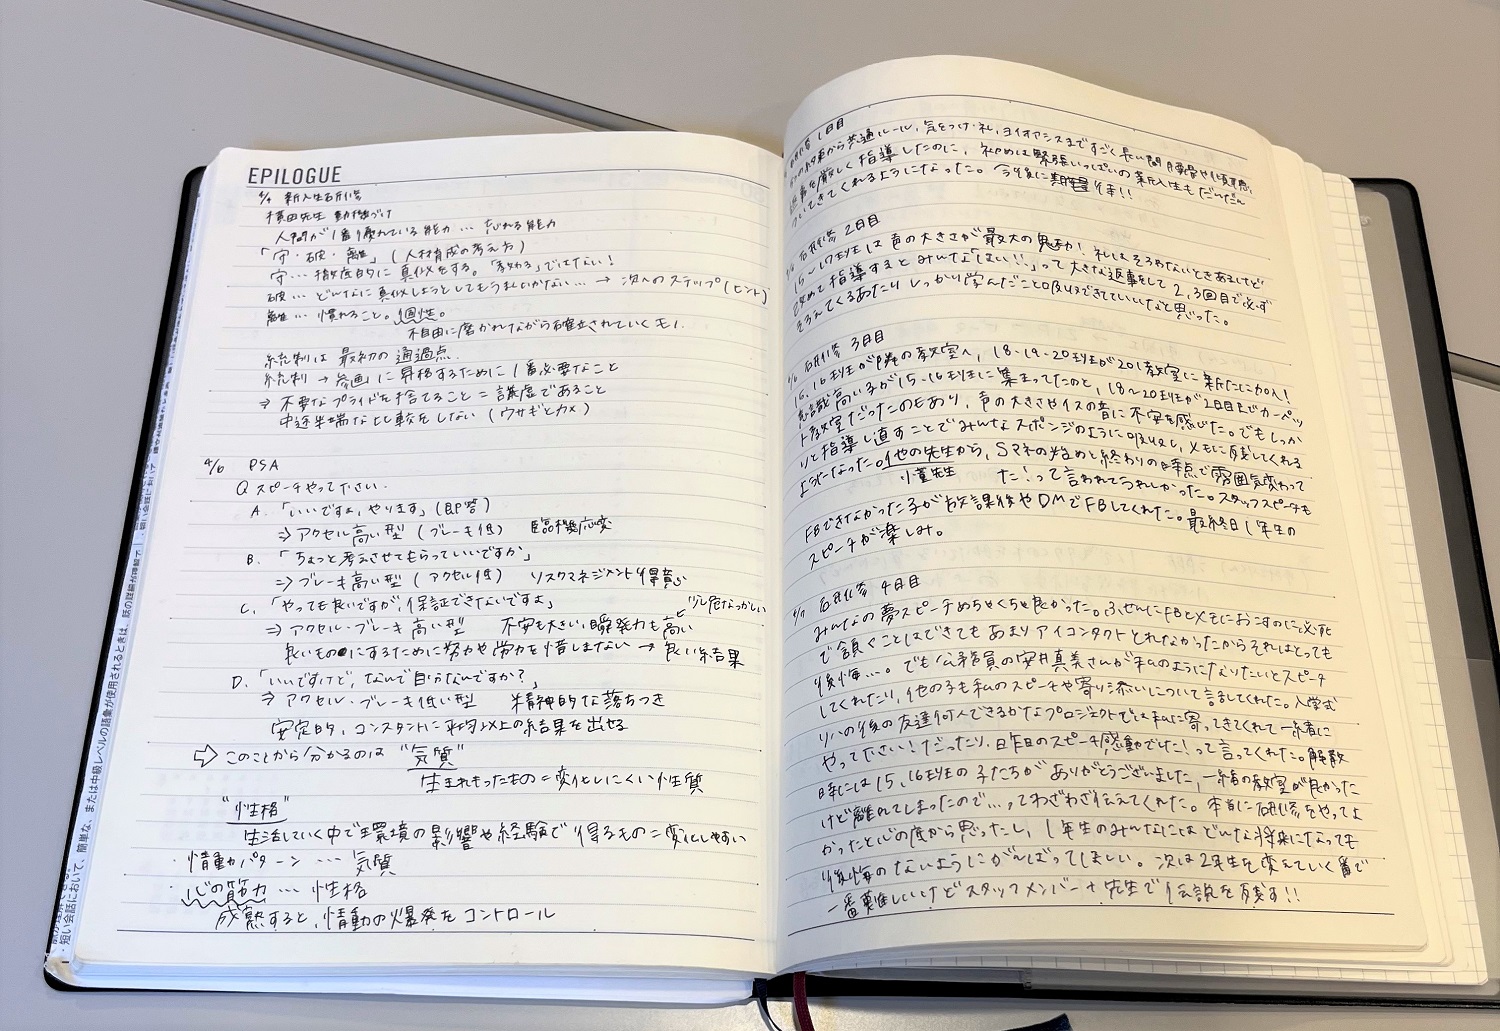 EPILOGUE
4/4 新入生研修
横田先生 動機づけ
人間が1番優れている能力… 忘れる能力
「守・破・離」(人材育成の考え方)
守… 徹底的に真似をする。「教わる」ではない!
破… どんなに真似しようとしてもうまくいかない… → 次へのステップ(ヒント)
離… 慣れること。個性。
不自由に磨かれながら確立されていくモノ.
統制は 最初の通過点.
統制 → 参画 に昇格するために1番必要なこと
⇒ 不要なプライドを捨てること = 謙虚であること
中途半端な比較をしない(ウサギとカメ)
4/6 PSA
Q スピーチやって下さい.
A. 「いいですよ, やります」(即答)
⇒ アクセル高い型(ブレーキ低) 臨機応変
B. 「ちょっと考えさせてもらっていいですか」
⇒ ブレーキ高い型(アクセル低) リスクマネジメント得意
C. 「やっても良いですが, 保証できないですよ」 少し危なっかしい
⇒ アクセル・ブレーキ高い型 不安も大きい, 瞬発力も高い
良いものにするために努力や労力を惜しまない → 良い結果
D. 「いいですけど, なんで自分なんですか?」
⇒ アクセル・ブレーキ低い型 精神的な落ちつき
安定的, コンスタントに平均以上の結果を出せる
⇨ このことから分かるのは "気質"
生まれもったもの = 変化しにくい性質
"性格"
生活していく中で環境の影響や経験で得るもの = 変化しやすい
・情動パターン … 気質
・心の筋力 … 性格
成熟すると, 情動の爆発をコントロール
研修 1日目
約束から共通ルール, 気をつけ・礼, ヨイオアシスまですごく長い間
厳しく指導したのに, 初めは緊張いっぱいの新入生もだんだん
ついてきてくれるようになった。今後に期待!!
研修 2日目
15~17班は声の大きさが最大の魅力! 礼はそろわないときあるけど
改めて指導するとみんな「はい!!」って大きな返事をして2,3回目で必ず
そろえてくるあたりしっかり学んだこと吸収できてていいなと思った。
4/6 研修 3日目
15, 16班が隣の教室へ, 18・19・20班が201教室に新たに加入!
意識高い子が15・16班に集まってたのと, 18~20班が2日目までカーペッ
ト教室だったのもあり, 声の大きさやイスの音に不安を感じた。でもしっか
りと指導し直すことでみんなスポンジのように吸収し, メモに残してくれる
ようになった。他の先生から, Sマネの始めと終わりの時点で雰囲気変わって
た!って言われてうれしかった。スタッフスピーチも
FBできなかった子が放課後やDMでFBしてくれた。最終日1年生の
スピーチが楽しみ。
4/7 研修 4日目
みんなの夢スピーチめちゃくちゃ良かった。ふせんにFBとメモにおこすのに必死
で頷くことはできてもあまりアイコンタクトとれなかったからそれはとっても
後悔…。でも公務員の安井真美さんが私のようになりたいとスピーチ
してくれたり, 他の子も私のスピーチや寄り添いについて話してくれた。入学式
リハの後の友達何人できるかなプロジェクトでは私に寄ってきてくれて一緒に
やって下さい!だったり, 昨日のスピーチ感動でした!って言ってくれた。解散
時には15, 16班の子たちがありがとうございました, 一緒の教室が良かった
けど離れてしまったので…ってわざわざ伝えてくれた。本当に研修をやってよ
かったと心の底から思ったし, 1年生のみんなにはどんな将来になっても
後悔のないようにがんばってほしい。次は2年生を変えていく番で
一番難しいけどスタッフメンバー+先生で伝説を残す!!
・短い会話において、簡単な、または中級レベルの語彙が使用されるときは、話の詳細が理解で